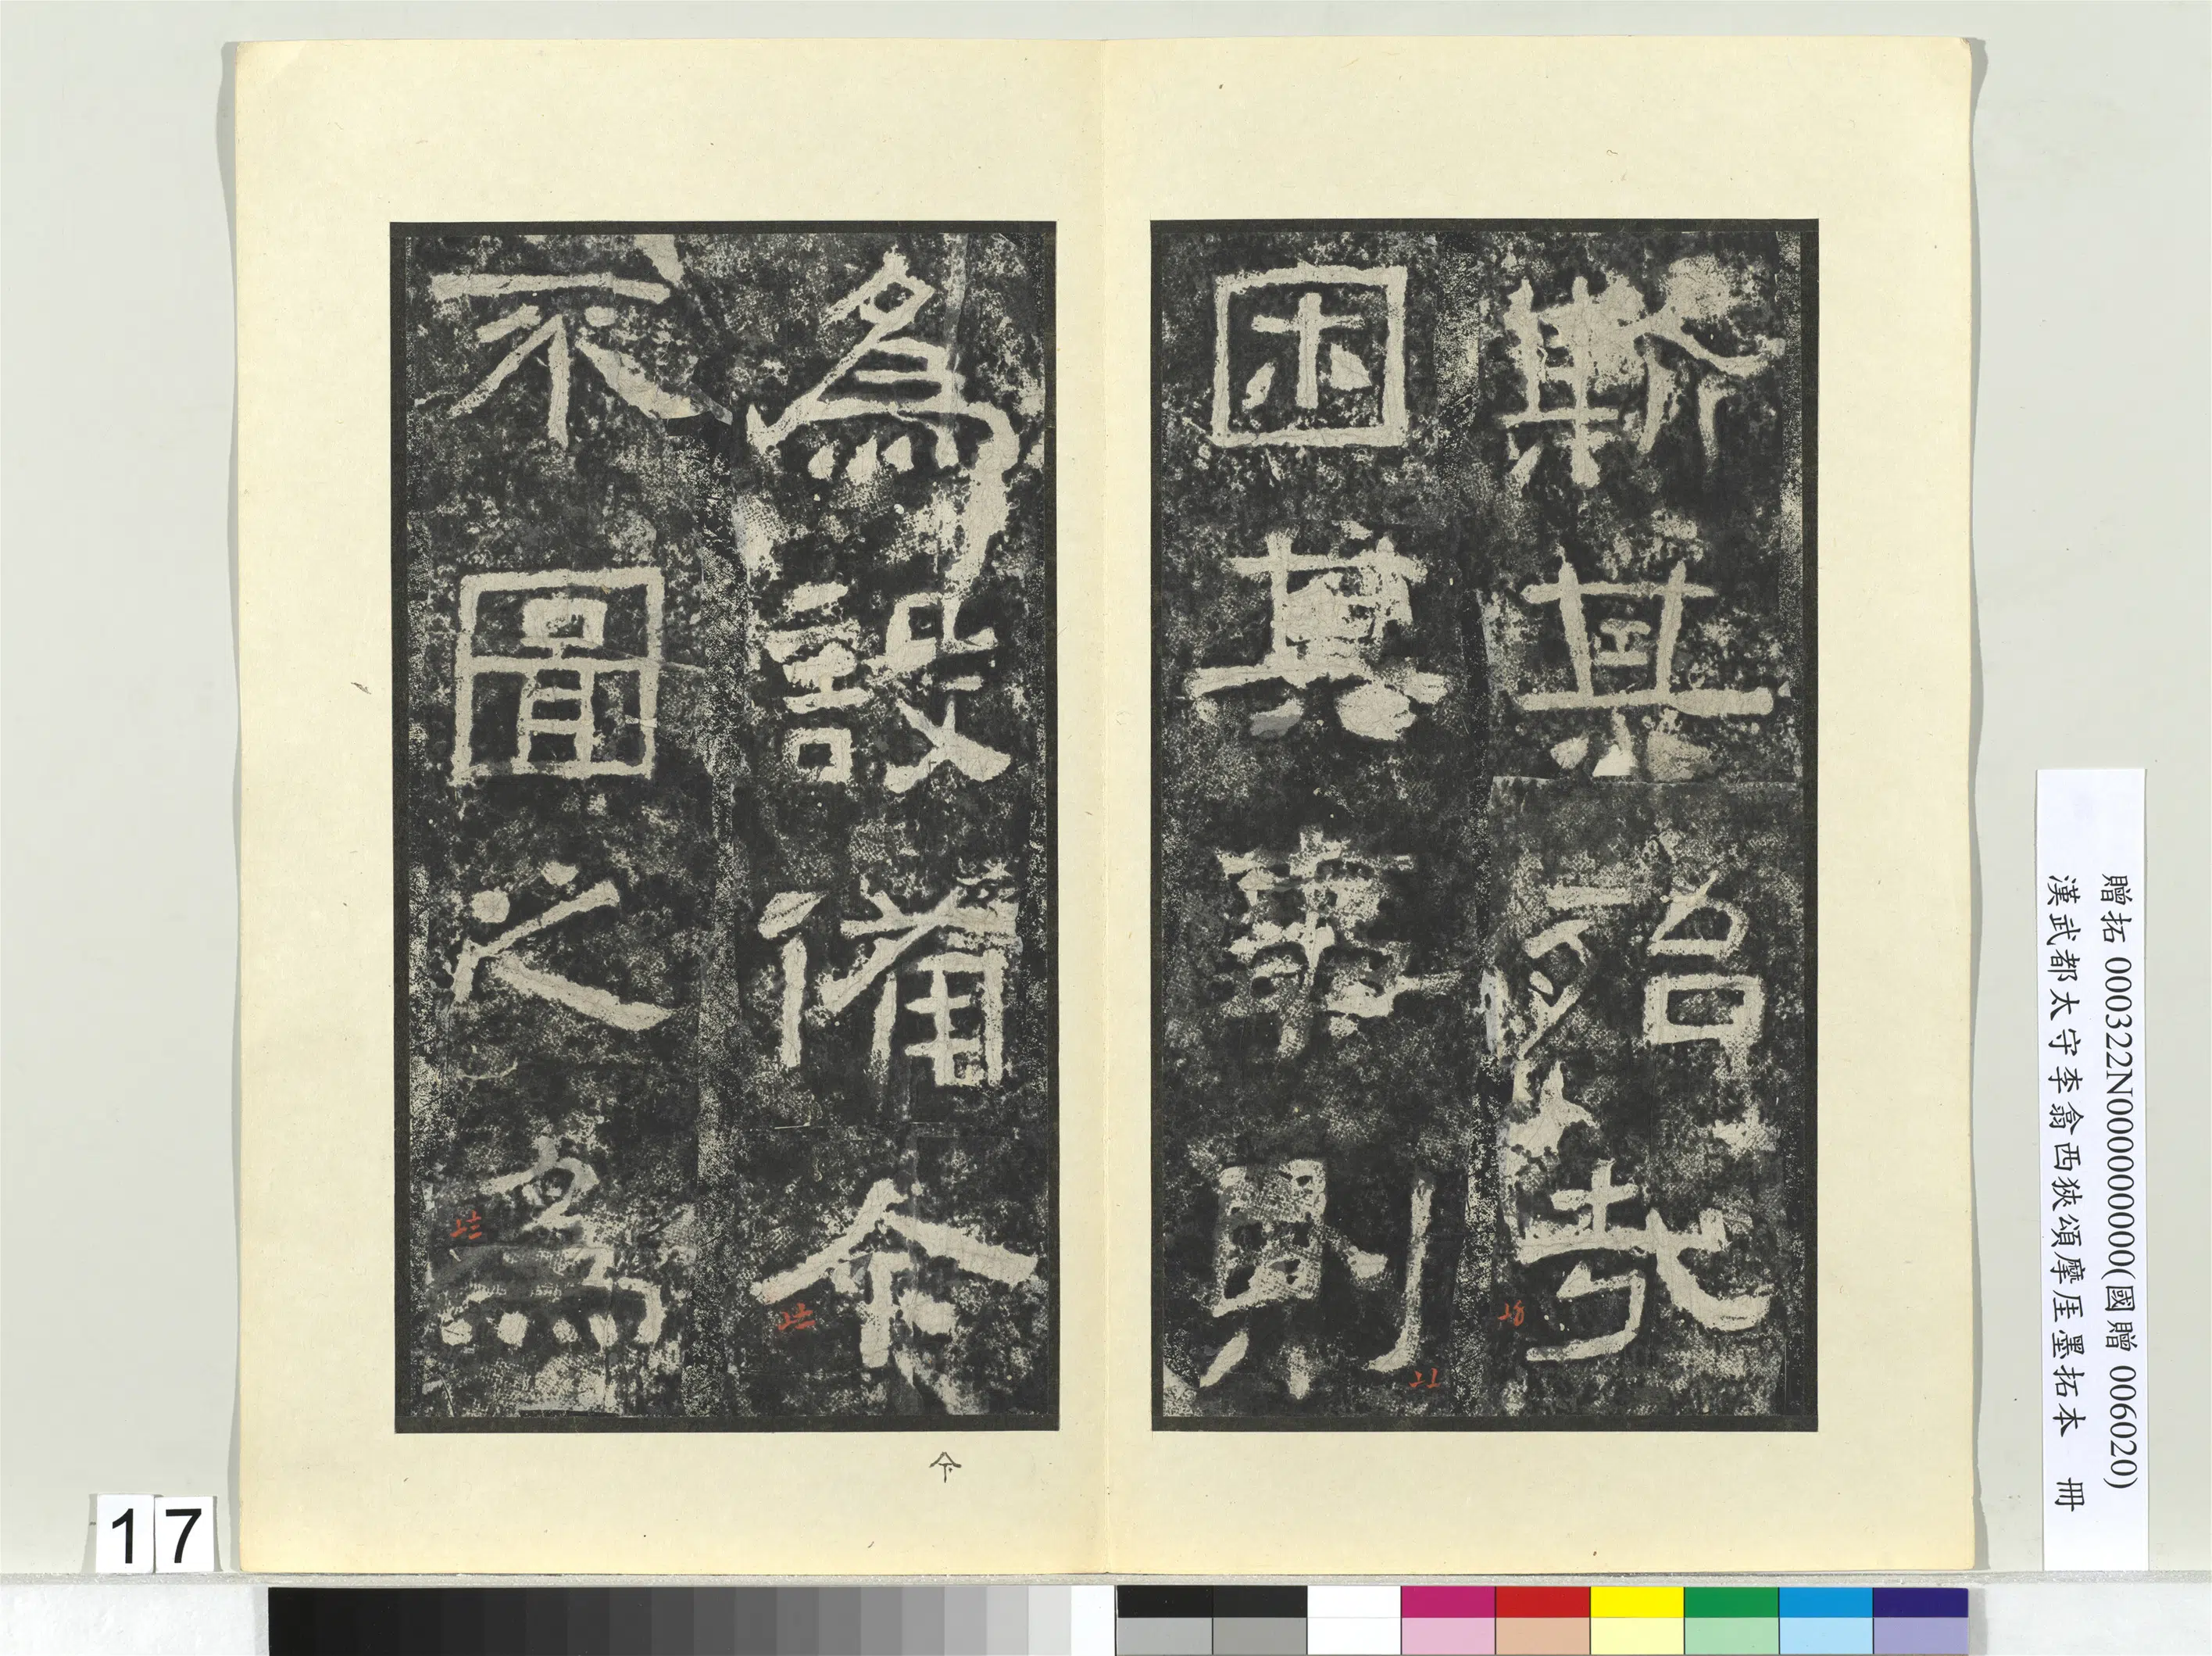 斯其殆哉
困其事則
爲設備今
不圖之爲
今
17
贈拓 000322N000000000(國贈 006020)
漢武都太守李翕西狹頌摩厓墨拓本 冊